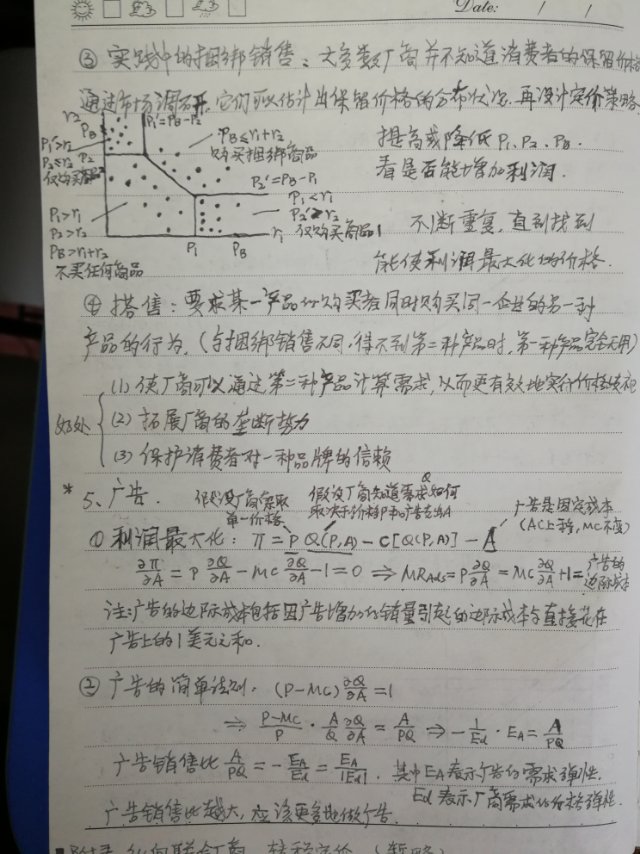 Date: / /
③ 实践中的捆绑销售：大多数厂商并不知道消费者的保留价格
通过市场调研，它们可以估计出保留价格的分布状况，再设计定价策略.
r₂
P_B
P₁'=P_B-P₂
P₁>r₁
P₂≤r₂
P₂
仅购买商品
P_B≤r₁+r₂
只购买捆绑商品
P₂'=P_B-P₁
P₁<r₁
P₂'≥r₂
仅购买商品1
P₁>r₁
P₂>r₂
P_B>r₁+r₂
不买任何商品
P₁
P_B
r₁
提高或降低P₁、P₂、P_B.
看是否能增加利润.
不断重复，直到找到
能使利润最大化的价格.
④ 搭售：要求某一产品的购买者同时购买同一企业的另一种
产品的行为.（与捆绑销售不同，得不到第二种产品时，第一种产品完全无用）
好处
(1) 使厂商可以通过第二种产品计算需求，从而更有效地实行价格歧视
(2) 拓展厂商的垄断势力
(3) 保护消费者对一种品牌的信赖
* 5、广告.
假设厂商采取
单一价格
假设厂商知道需求Q如何
取决于价格P和广告支出A
广告是固定成本
(AC上升,MC不变)
① 利润最大化：π = P Q(P,A) - C[Q(P,A)] - A
∂π/∂A = P ∂Q/∂A - MC ∂Q/∂A - 1 = 0 ⇒ MR_Ads = P ∂Q/∂A = MC ∂Q/∂A + 1 = 广告的边际成本
注：广告的边际成本包括因广告增加的销量引起的边际成本与直接花在
广告上的1美元之和.
② 广告的简单法则：(P-MC) ∂Q/∂A = 1
⇒ (P-MC)/P · A/Q ∂Q/∂A = A/PQ ⇒ -1/Ed · E_A = A/PQ
广告销售比 A/PQ = -E_A/Ed = E_A/|Ed|. 其中E_A表示广告的需求弹性.
Ed表示厂商需求的价格弹性.
广告销售比越大，应该更多地做广告.
（暂略）